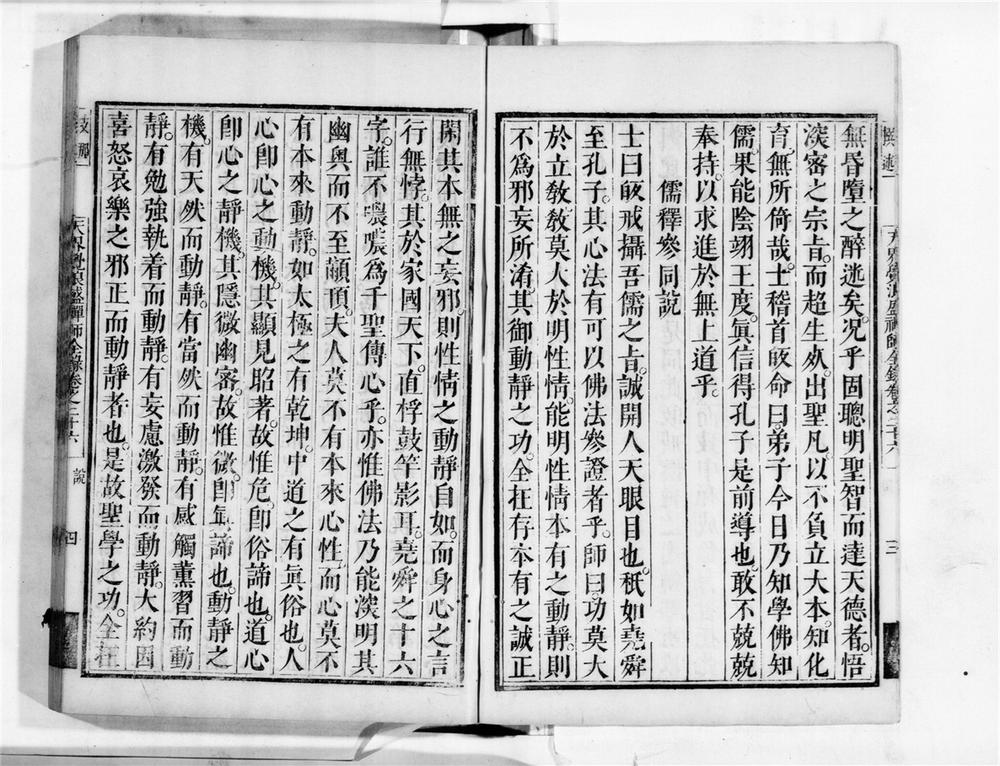 無昏墮之醉迷矣。况乎固聰明聖智而達天德者。悟
深審之宗旨。而超生死。出聖凡。以不負立大本。知化
育。無所倚哉。士稽首皈命曰。弟子今日乃知學佛知
儒。果能陰翊王度。眞信得孔子是前導也。敢不兢兢
奉持。以求進於無上道乎。
儒釋參同說
士曰。皈戒攝吾儒之旨。誠開人天眼目也。秖如堯舜
至孔子。其心法有可以佛法參證者乎。師曰。功莫大
於立敎。敎莫大於明性情。能明性情本有之動靜。則
不爲邪妄所淆。其御動靜之功。全在存本有之誠正
閑其本無之妄邪。則性情之動靜自如。而身心之言
行無悖。其於家國天下。直桴鼓竿影耳。堯舜之十六
字。誰不噥噥爲千聖傳心乎。亦惟佛法乃能深明其
幽奥。而不至顢頇。夫人莫不有本來心性。而心莫不
有本來動靜。如太極之有乾坤。中道之有眞俗也。人
心卽心之動機。其顯見昭著。故惟危。卽俗諦也。道心
卽心之靜機。其隱微幽審。故惟微。卽眞諦也。動靜之
機。有天然而動靜。有當然而動靜。有感觸薰習而動
靜。有勉強執着而動靜。有妄慮激發而動靜。大約因
喜怒哀樂之邪正而動靜者也。是故聖學之功。全在
說
四
三